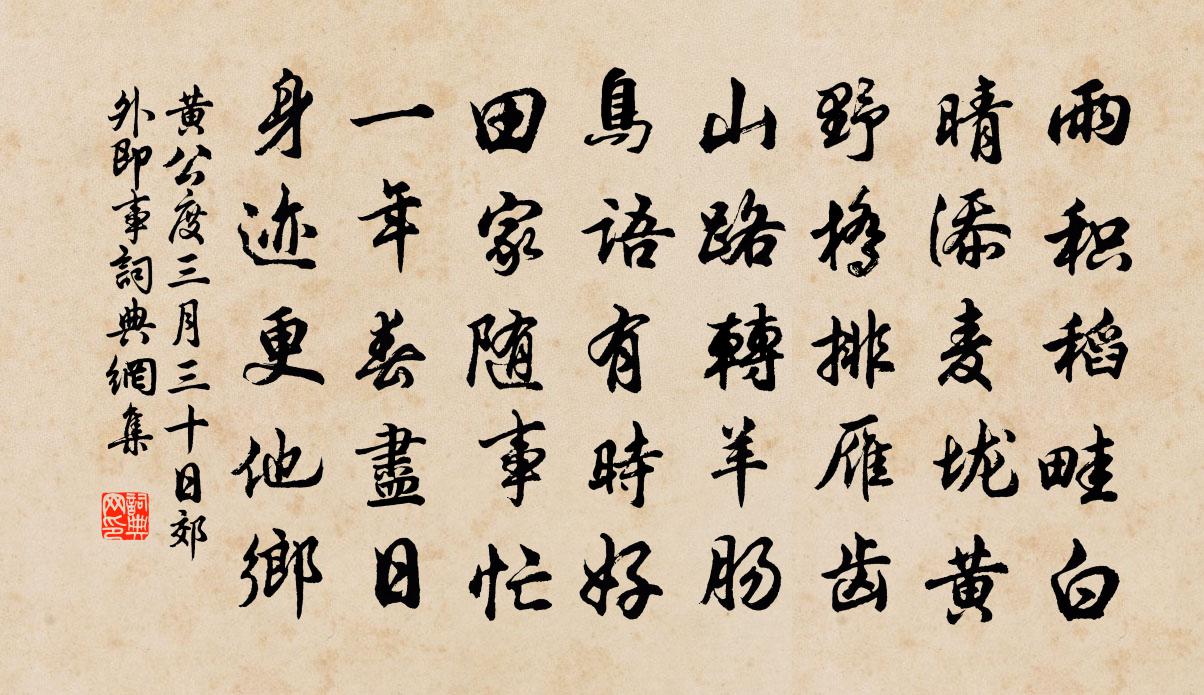 雨积稻畦白
晴添麦垅黄
野橋排雁齿
山路轉羊肠
鳥語有時好
田家随事忙
一年春盡日
身迹更他鄉
黄公度三月三十日郊
外即事詞典網集
詞典
网印